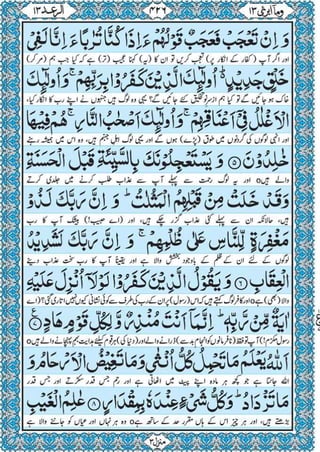 الرعد ١٣
٤٢٦
وما أبرئ ١٣
وَ اِنْ تَعْجَبْ فَعَجَبٌ قَوْلُهُمْ ءَاِذَا كُنَّا تُرٰبًا ءَاِنَّا لَفِیْ
اور اگر آپ (کفار کے انکار پر) تعجب کریں تو ان کا (یہ) کہنا عجیب (تر) ہے کہ کیا جب ہم (مر کر)
خَلْقٍ جَدِیْدٍ ؕ۬ اُولٰٓىِٕكَ الَّذِیْنَ كَفَرُوْا بِرَبِّهِمْ ۚ وَ اُولٰٓىِٕكَ
خاک ہو جائیں گے تو کیا ہم از سرِ نو تخلیق کئے جائیں گے؟ یہی وہ لوگ ہیں جنہوں نے اپنے رب کا انکار کیا،
الْاَغْلٰلُ فِیْۤ اَعْنَاقِهِمْ ۚ وَ اُولٰٓىِٕكَ اَصْحٰبُ النَّارِ ۚ هُمْ فِیْهَا
اور انہی لوگوں کی گردنوں میں طوق (پڑے) ہوں گے اور یہی لوگ اہلِ جہنم ہیں، وہ اس میں ہمیشہ رہنے
خٰلِدُوْنَ ۵ وَ یَسْتَعْجِلُوْنَكَ بِالسَّیِّئَةِ قَبْلَ الْحَسَنَةِ
والے ہیں٥ اور یہ لوگ رحمت سے پہلے آپ سے عذاب طلب کرنے میں جلدی کرتے
وَ قَدْ خَلَتْ مِنْ قَبْلِهِمُ الْمَثُلٰتُ ؕ وَ اِنَّ رَبَّكَ لَذُوْ
ہیں، حالانکہ ان سے پہلے کئی عذاب گزر چکے ہیں، اور (اے حبیب!) بیشک آپ کا رب
مَغْفِرَةٍ لِّلنَّاسِ عَلٰی ظُلْمِهِمْ ۚ وَ اِنَّ رَبَّكَ لَشَدِیْدُ
لوگوں کے لئے ان کے ظلم کے باوجود بخشش والا ہے اور یقیناً آپ کا رب سخت عذاب دینے
الْعِقَابِ ۶ وَ یَقُوْلُ الَّذِیْنَ كَفَرُوْا لَوْلَاۤ اُنْزِلَ عَلَیْهِ
والا (بھی) ہے٥ اور کافر لوگ کہتے ہیں کہ اس (رسول) پر ان کے رب کی طرف سے کوئی نشانی کیوں نہیں اتاری گئی؟ (اے
اٰیَةٌ مِّنْ رَّبِّهٖ ؕ اِنَّمَاۤ اَنْتَ مُنْذِرٌ وَّ لِكُلِّ قَوْمٍ هَادٍ ۷
اَللّٰهُ یَعْلَمُ مَا تَحْمِلُ كُلُّ اُنْثٰی وَ مَا تَغِیْضُ الْاَرْحَامُ وَ
اللہ جانتا ہے جو کچھ ہر مادہ اپنے پیٹ میں اٹھاتی ہے اور رحم جس قدر سکڑتے اور جس قدر
مَا تَزْدَادُ ؕ وَ كُلُّ شَیْءٍ عِنْدَهٗ بِمِقْدَارٍ ۸ عٰلِمُ الْغَیْبِ
بڑھتے ہیں، اور ہر چیز اس کے ہاں مقرر حد کے ساتھ ہے٥ وہ ہر نہاں اور عیاں کو جاننے والا ہے
منزل ٣